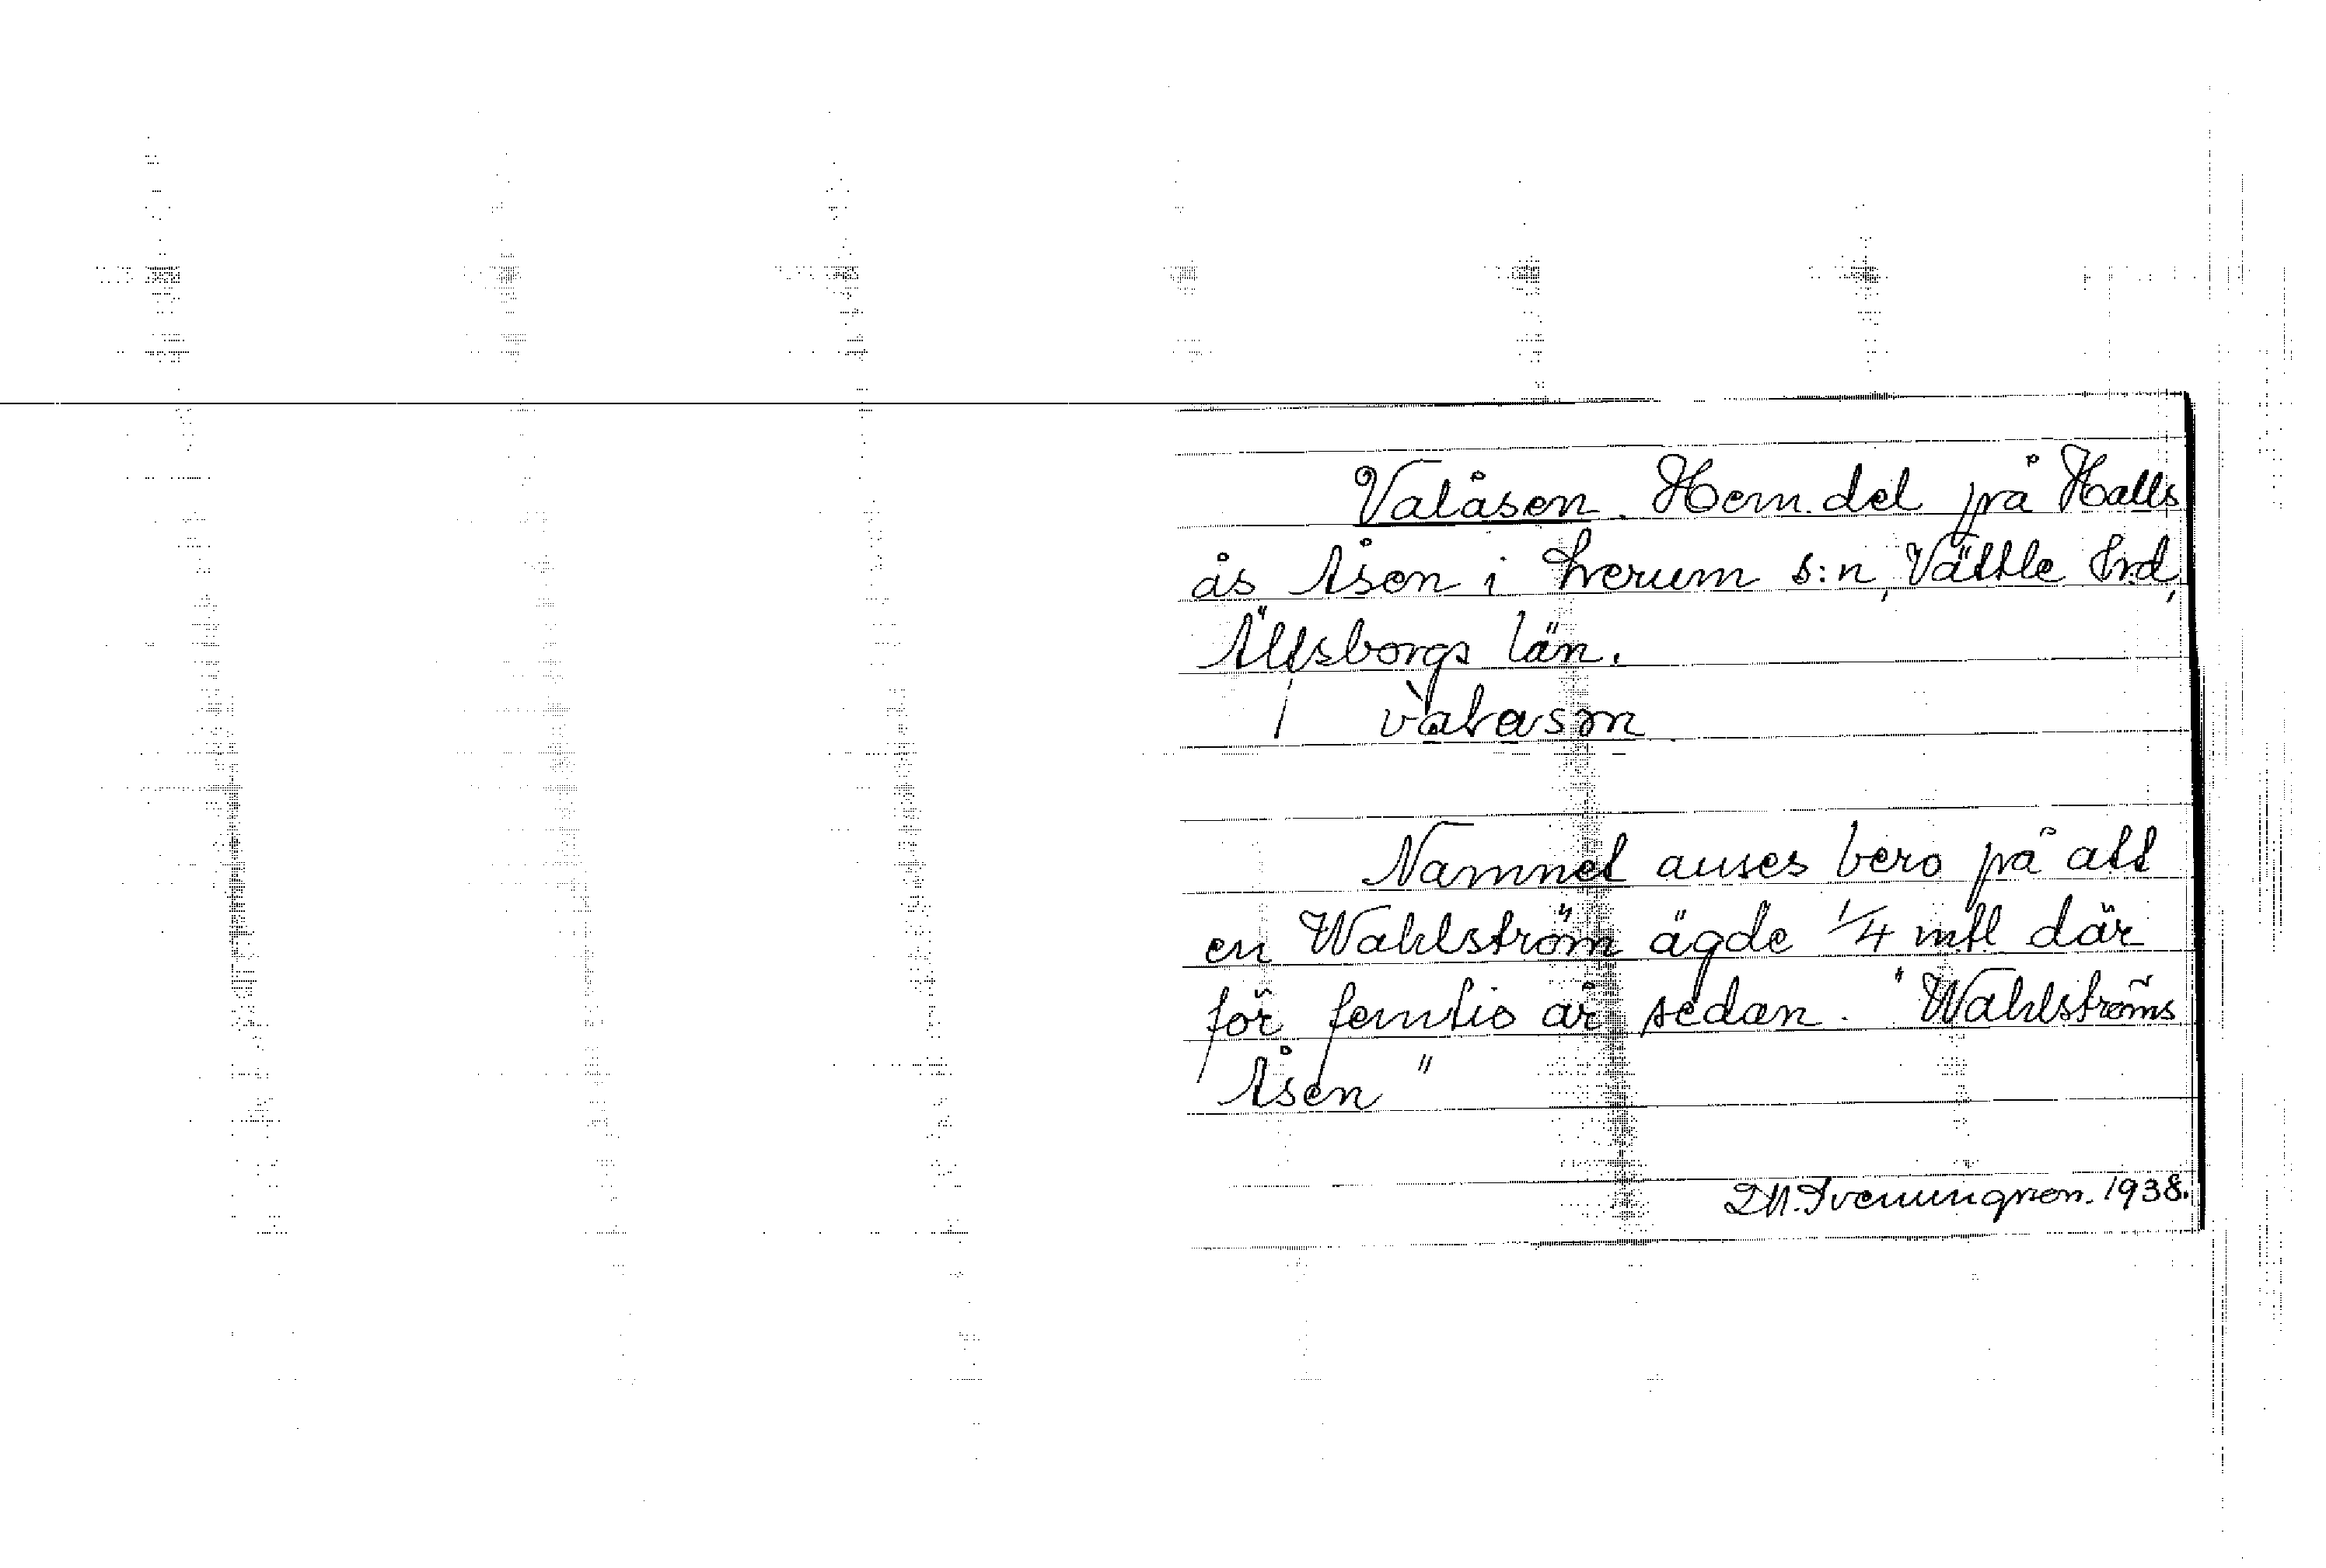 Valåsen. Hem. del på Halls
ås Åsen i Lerum s:n, Vättle hrd,
Älfsborgs län.
vàlasm
Namnet anses bero på att
en Wahlström ägde 1/4 mtl där
för femtio år sedan. "Wahlströms
Åsen"
1938.